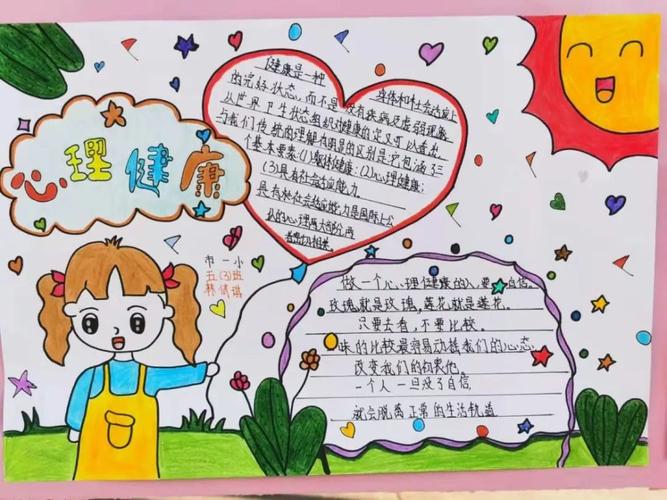 心理健康
市一小
五(3)班
健康是一种 身体和社会适应上
的完好状态,而不是没有疾病及虚弱现象
从世界卫生状态组织对健康的定义可以看出,
与我们传统的理解有明显的区别是它包涵了三
个基本要素:(1)躯体健康;(2)心理健康;
(3)具有社会适应能力。
具有社会适应能力是国际上公
认的心理 两大部分,两
者密切相关。
做一个心理健康的人,要 自信。
玫瑰就是玫瑰,莲花就是莲花。
只要去看,不要比较。
味的比较最容易动摇我们的心态
改变我们的初衷他
一个人一旦没了自信
就会脱离正常的生活轨道